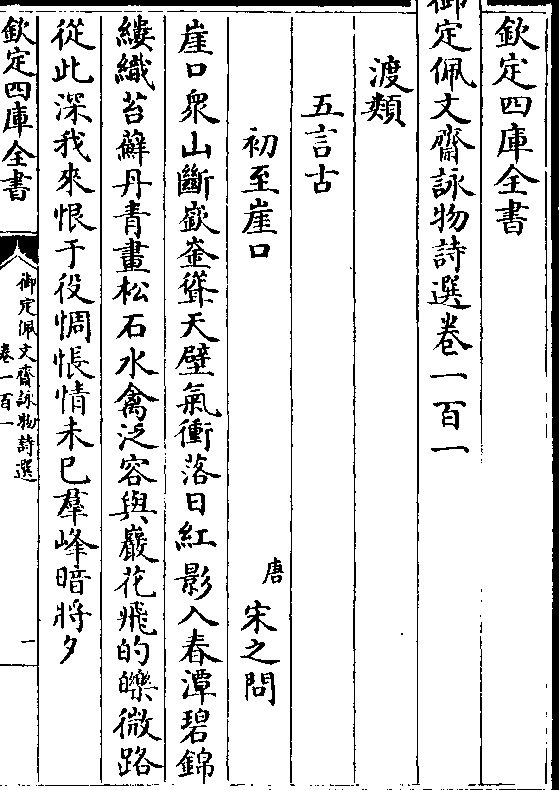 欽定四庫全書
御定佩文齋詠物詩選卷一百一
渡類
五言古
初至崖口 唐 宋之問
崖口衆山斷嶔崟聳天壁氣衝落日紅影入春潭碧錦
縷織苔蘚丹青畫松石水禽泛容與巖花飛的皪微路
從此深我來恨于役惆悵情未已羣峰暗將夕
欽定四庫全書
御定佩文齋詠物詩選
卷一百一
一